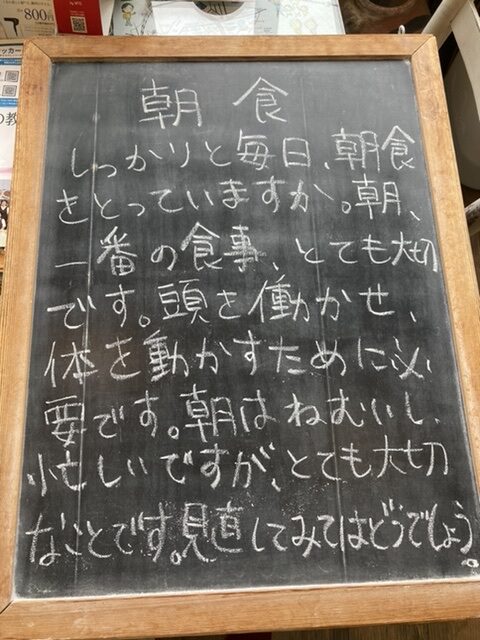 800円
の教
朝食
しっかりと毎日、朝食
をとっていますか。朝、
一番の食事、とても大切
です。頭を働かせ、
体を動かすために必
要です。朝はねむいし、
忙しいですが、とても大切
なことです。見直してみてはどうでしょう。